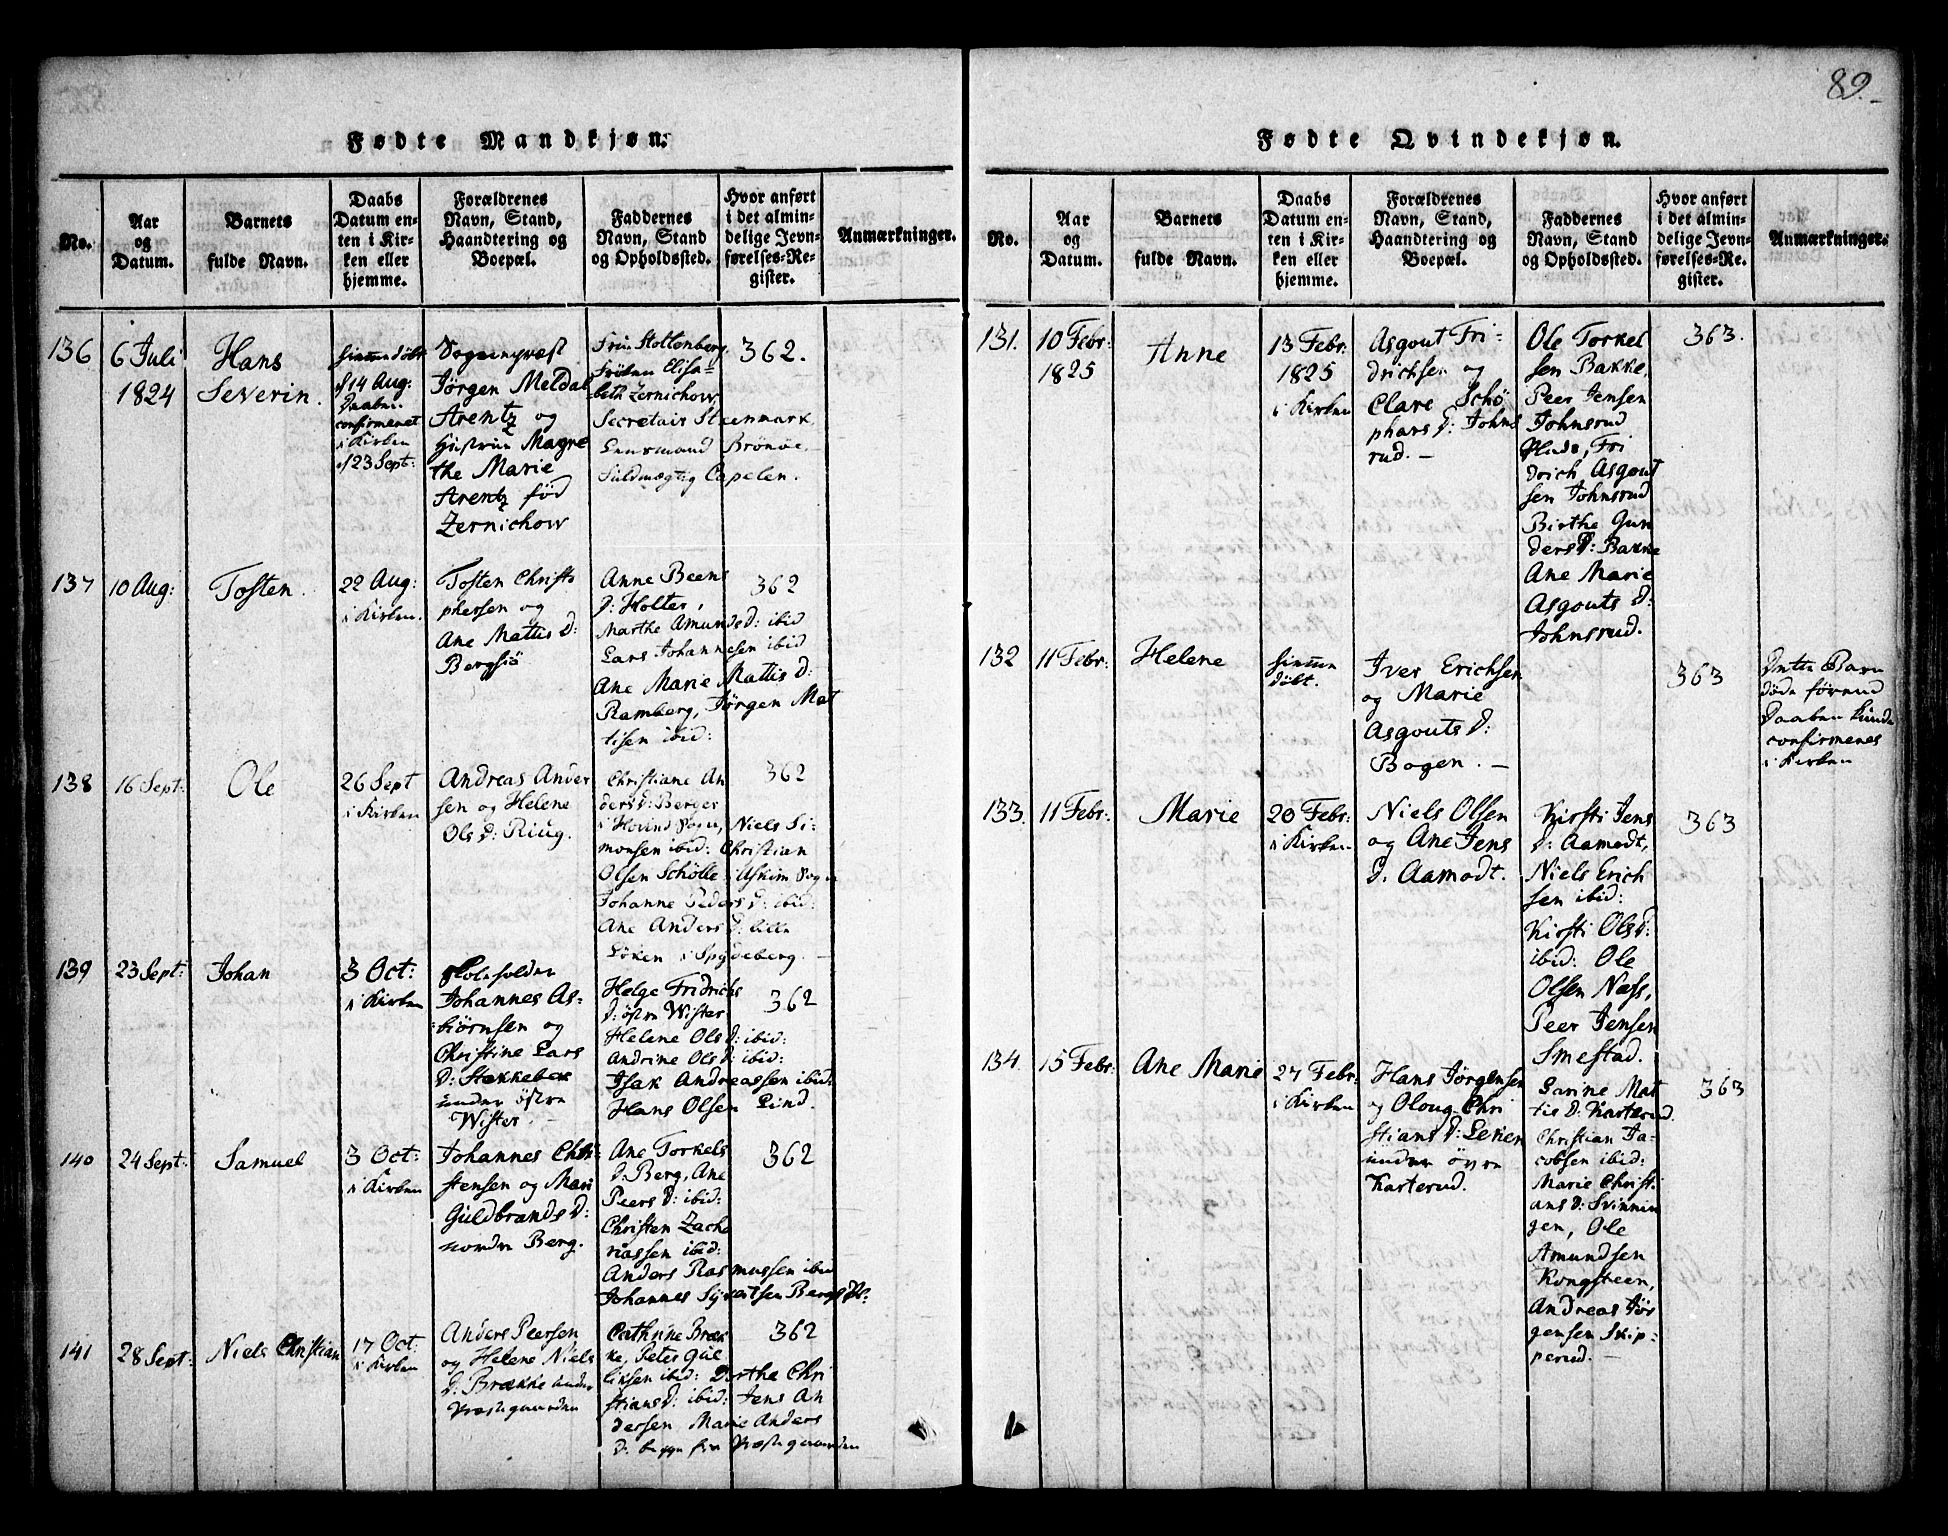 89.
Fødte Mandkjøn.
No.
Aar
og
Datum.
Barnets
fulde Navn.
Daabs
Datum en-
ten i Kir-
ken eller
hjemme.
Forældrenes
Navn, Stand,
Haandtering og
Boepæl.
Faddernes
Navn, Stand
og Opholdssted.
Hvor anført
i det almin-
delige Jevn-
førelses-Re-
gister.
Anmærkninger.
136
6 Juli
1824
Hans
Severin.
hiemedøbt
d 14 Aug:
Daaben
confirmeret
i Kirken
d 23 Sept:
Sogneprest
Jørgen Meldal
Arentz og
Hustrue Magre
the Marie
Arentz fød
Zernichow
Fru Stoltenberg
Frøken Elisa-
beth Zernichow
Secretair Steenmark
Lensmand Brönöe.
Fuldmægtig Capelen.
362.
137
10 Aug:
Tosten.
22 Aug:
i Kirken.
Tosten Christo
phersen og
Ane Mattis D:
Bergsiö
Anne Beens
D: Holter,
Marthe Amunds D: ibid
Lars Johannesen ibid
Ane Marie Mattis D:
Ramberg, Jörgen Mat
tisen ibid:
362
138
16 Sept:
Ole
26 Sept
i Kirken
Andreas Ander
sen og Helene
Ols D: Riug.
Christiane An
ders D: Berger
i Hovind Sogn, Niels Si-
monsen ibid: Christian
Olsen Schölle i Askim Sogn
Johanne Peders D: ibid:
Ane Anders D: lille
Löken i Spydeberg.
362
139
23 Sept:
Johan
3 Oct:
i Kirken
Johannes As-
biörnsen og
Christine Lars
D: Stekkebek
under östre
Wister.
Helge Fridrichs
D: östre Wister
Helene Ols D: ibid:
Andrine Ols D: ibid:
Isak Andreassen ibid:
Hans Olsen Lind.
362
140
24 Sept:
Samuel
3 Oct:
i Kirken
Johannes Chri
stensen og Mari
Guldbrands D:
nordre Berg.
Ane Torkels
D: Berg, Ane
Peers D: ibid:
Christen Zacha
riassen ibid:
Anders Rasmussen ibid
Johannes Syvertsen Bergs
362
141
28 Sept:
Niels Christian
17 Oct:
i Kirken
Anders Peersen
og Helene Niels
D: Brække under
Præstegaarden
Cathrine Bræk
ke, Peter Gul
liksen ibid: Dorthe Chri
stians D: ibid: Jens An
dersen Marie Anders
D: begge fra Præstegaarden
362
Fødte Qvindekjøn.
No.
Aar
og
Datum.
Barnets
fulde Navn.
Daabs
Datum en-
ten i Kir-
ken eller
hjemme.
Forældrenes
Navn, Stand,
Haandtering og
Boepæl.
Faddernes
Navn, Stand
og Opholdssted.
Hvor anført
i det almin-
delige Jevn-
førelses-Re-
gister.
Anmærkninger.
131.
10 Febr:
1825
Anne
13 Febr:
1825
i Kirken
Asgout Fri-
drichsen og
Clare Schö
phars D: Johns
rud.
Ole Torkel
sen Bakke,
Peer Jensen
Johnsrud
Fri
drich Asgout
sen Johnsrud
Birthe Gun
ders D: Bakke
Ane Marie
Asgouts D:
Johnsrud.
363.
132
11 Febr:
Helene
hieme
döbt.
Iver Erichsen
og Marie
Asgouts D:
Bogen.
363
Dette Barn
döde förend
Daaben kunde
confirmeres
i Kirken
133.
11 Febr:
Marie
20 Febr:
i Kirken
Niels Olsen
og Ane Jens
D: Aamodt.
Kirsti Jens
D: Aamodt,
Niels Erich
sen ibid:
Kirsti Ols D:
ibid: Ole
Olsen Næss,
Peer Jensen
Smestad.
363
134.
15 Febr:
Ane Marie
27 Febr:
i Kirken
Hans Jörgensen
og Oloug Chri
stians D: Lekier
under övre
Karterud.
Larine Mat
tis D: Karterud
Christian Ja-
cobsen ibid:
Marie Christi
ans D: Svinnin
gen, Ole
Amundsen
Kongsteen,
Andreas Jör
gensen Skip-
perud.
363